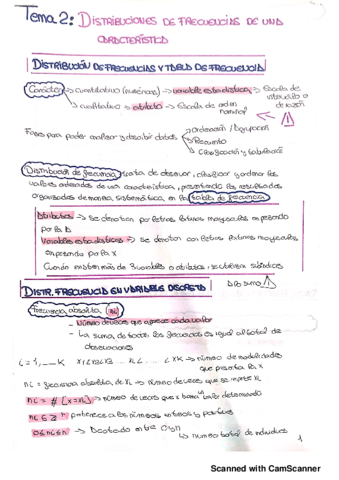 Tema 2: DISTRIBUCIONES DE FRECUENCIAS DE UNA
CARACTERÍSTICA
DISTRIBUCIÓN DE FRECUENCIAS Y TABLA DE FRECUENCIA
Carácter → cuantitativo (numéricas) → variables estadísticas → Escala de
intervalo o
de razón
→ cualitativo → atributo → Escala de orden
nominal
Fases para poder analizar y describir datos → Ordenación / Agrupación
→ Recuento
→ Clasificación y tabulación
Distribución de frecuencia: trata de observar, clasificar y ordenar los
valores ordenados de una característica, presentando los resultados
organizados de manera sistemática, en la tabla de frecuencia
Atributos → Se denotan por letras latinas mayúsculas empezando
por la A
Variables estadísticas → Se denotan con letras latinas mayúsculas
empezando por la X
Cuando existen más de 3 variables o atributos, se utilizan subíndices
DISTR. FRECUENCIA EN VARIABLES DISCRETAS
Frecuencia absoluta ni
- Número de veces que aparece cada valor
- La suma de todas las frecuencias es igual al total de
observaciones
i = 1, ... K x1<x2<x3 ... xi < ... < xK → número de modalidades
que presenta la X
ni = frecuencia absoluta de Xi → número de veces que se repite Xi
ni = # {X = xi} → número de veces que X toma un valor determinado
ni ∈ Z+ pertenece a los números enteros y positivos
0≤ni≤n → Acotado entre 0 y n
↳ número total de individuos
1
Scanned with CamScanner